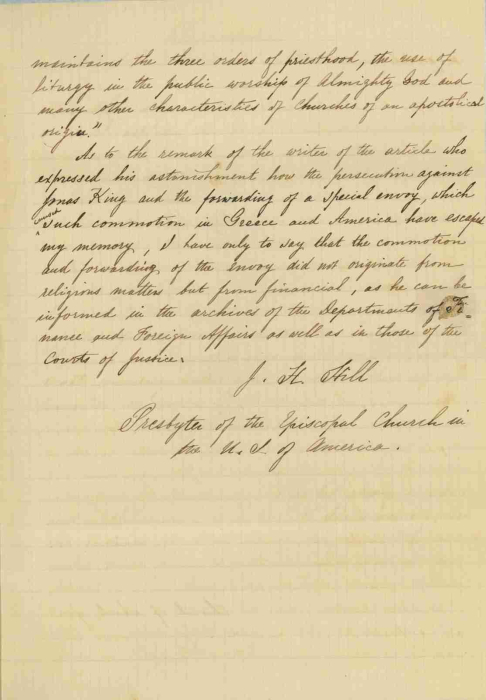 maintains the three orders of priesthood, the use of
liturgy in the public worship of Almighty God and
many other characteristics of Churches of an apostolical
origin."
As to the remark of the writer of the article who
expressed his astonishment how the persecution against
Jonas King and the forwarding of a special envoy, which
caused such commotion in Greece and America have escaped
my memory, I have only to say that the commotion
and forwarding of the envoy did not originate from
religious matters but from financial, as he can be
informed in the archives of the Departments of Fi-
nance and Foreign Affairs as well as in those of the
Courts of Justice.
J. H. Hill
Presbyter of the Episcopal Church in
the U. S. of America.